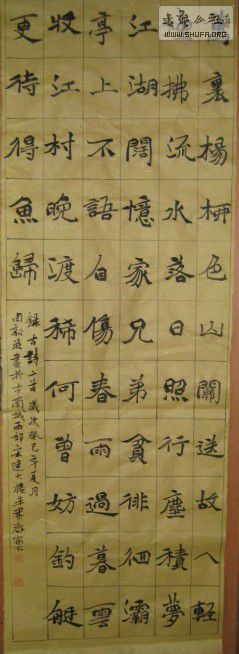 裏楊柳色山關送故人輕
拂流水落日照行塵積夢
江湖闊憶家兄弟貧徘徊灞
亭上不語自傷春雨過暮雲
收江村晚渡稀何曾妨釣艇
更待得魚歸
錄古詩二首歲次癸巳年夏月
WWW.SHUFA.ORG